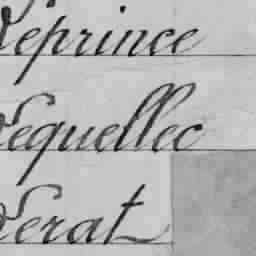 Leprince
Lequellec
Lerat